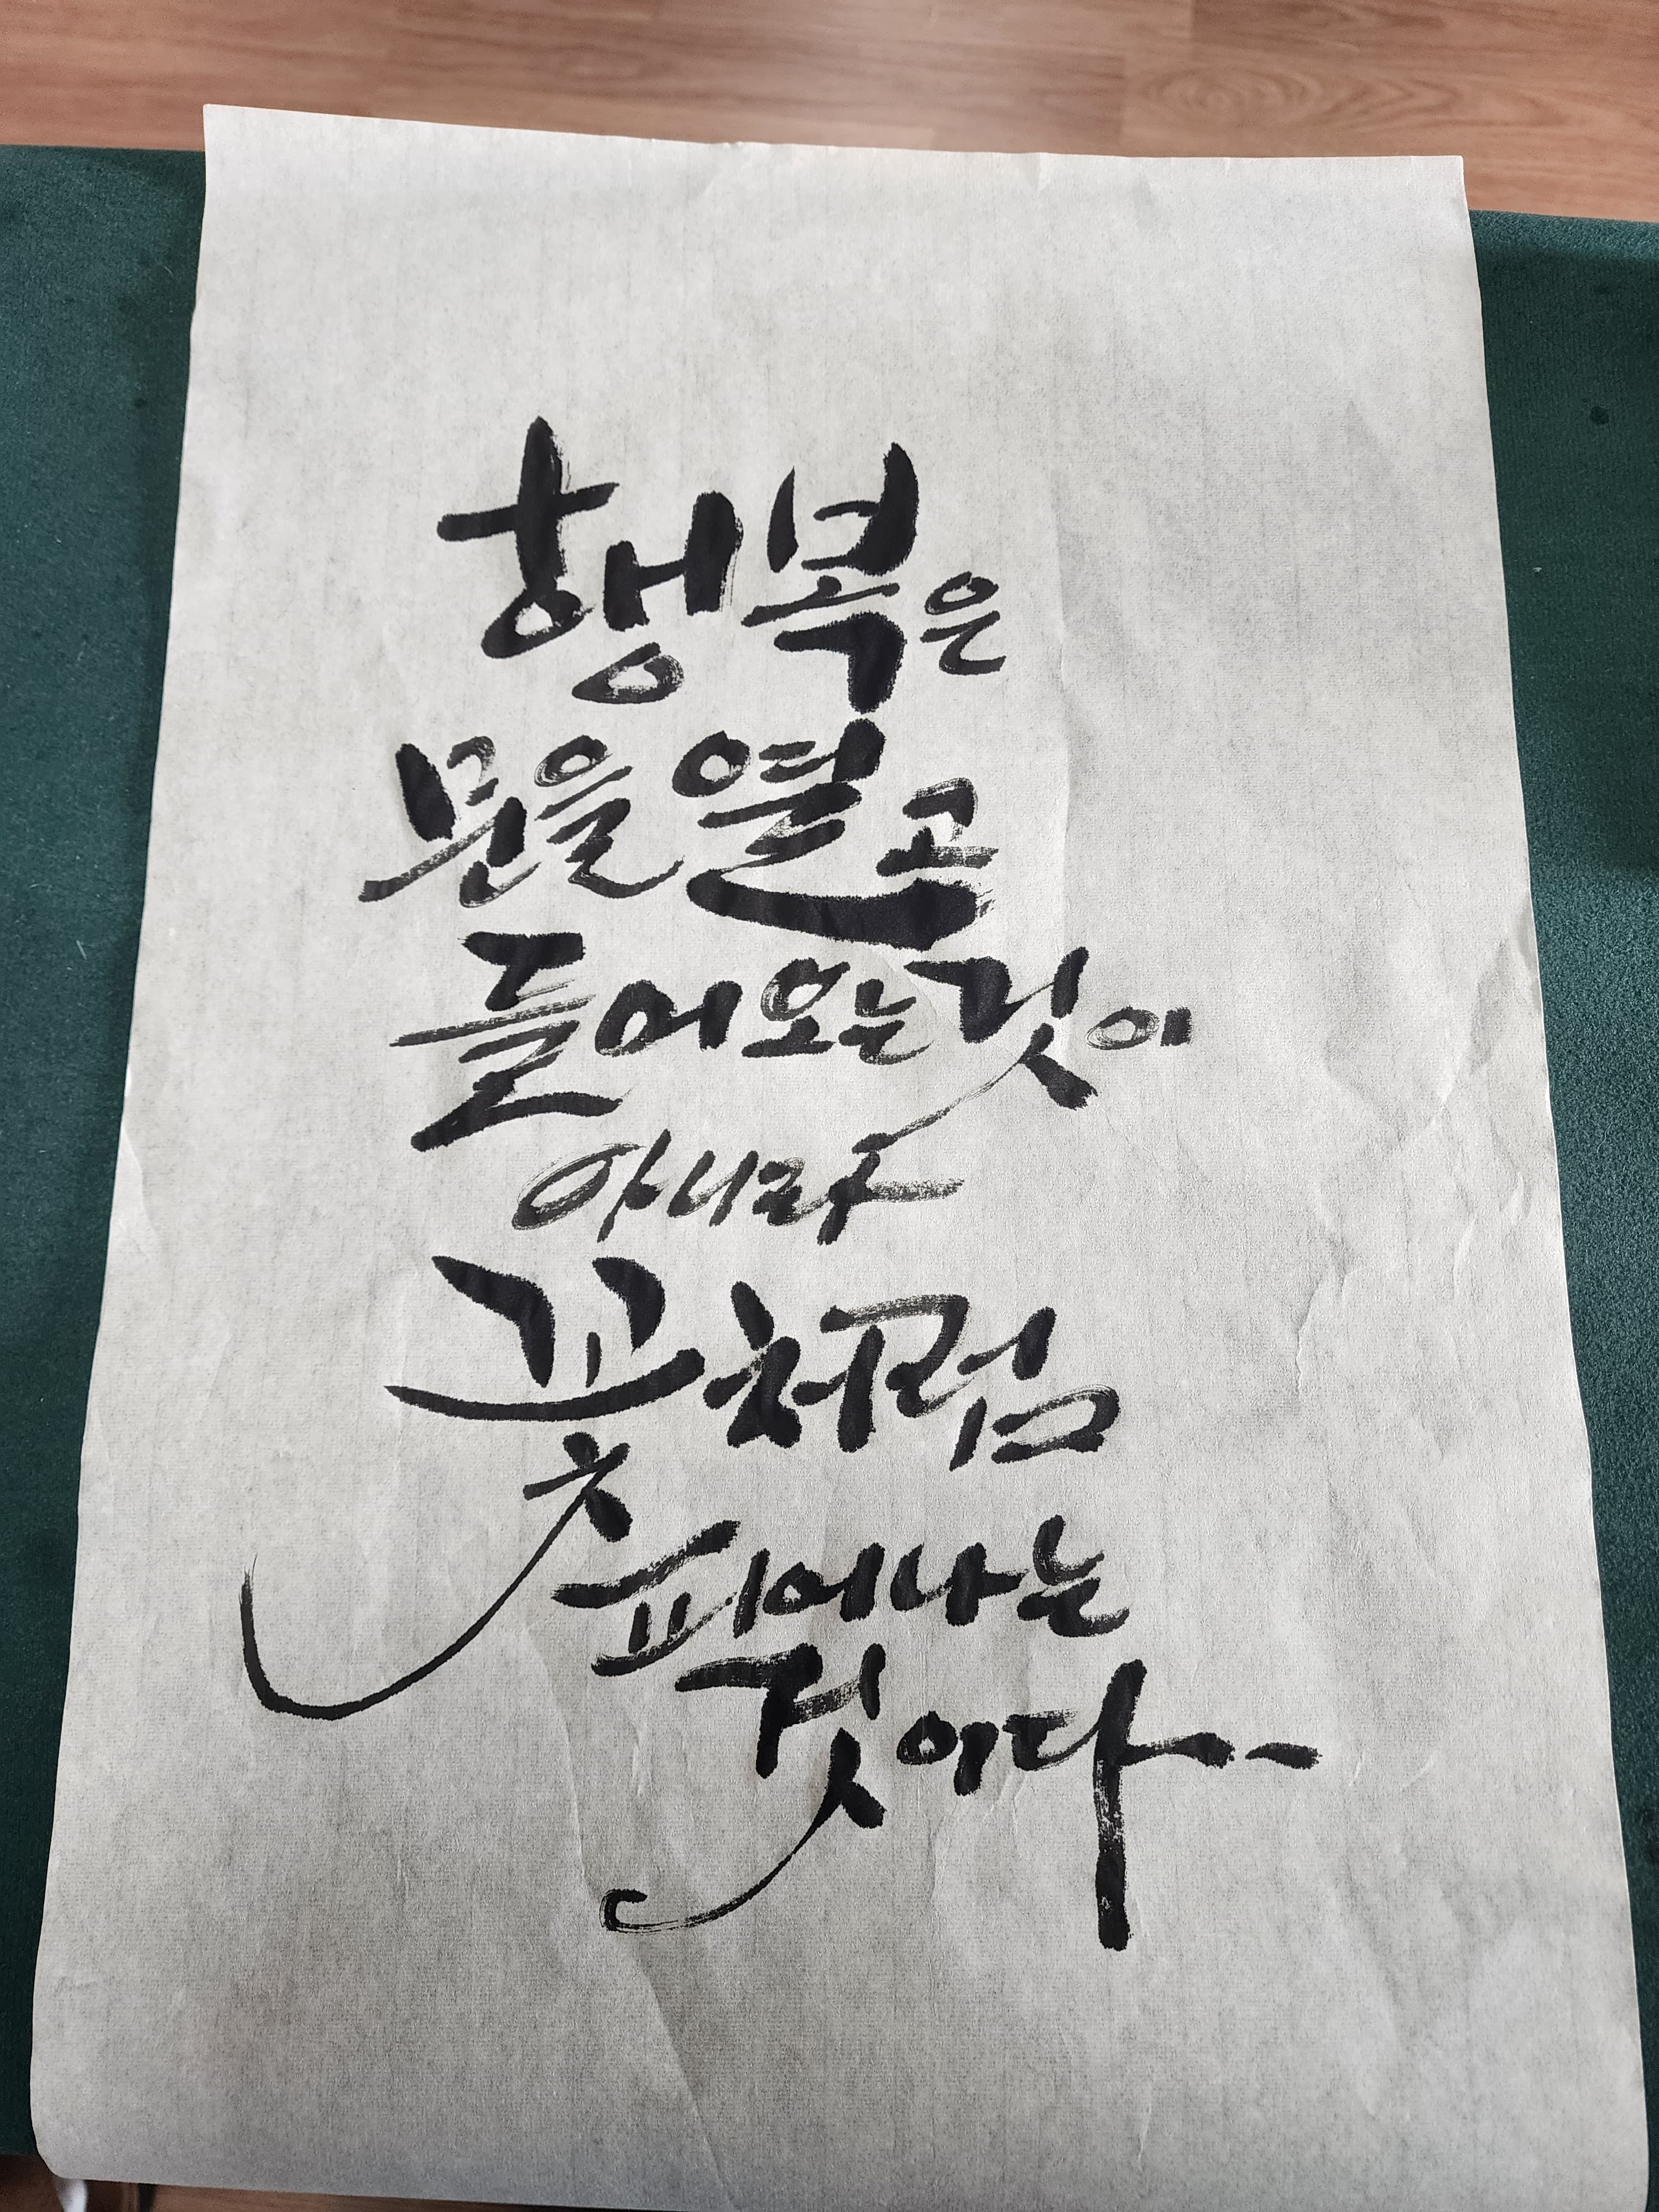 행복은
문을 열고
들어오는 것이
아니라
꽃처럼
피어나는
것이다--